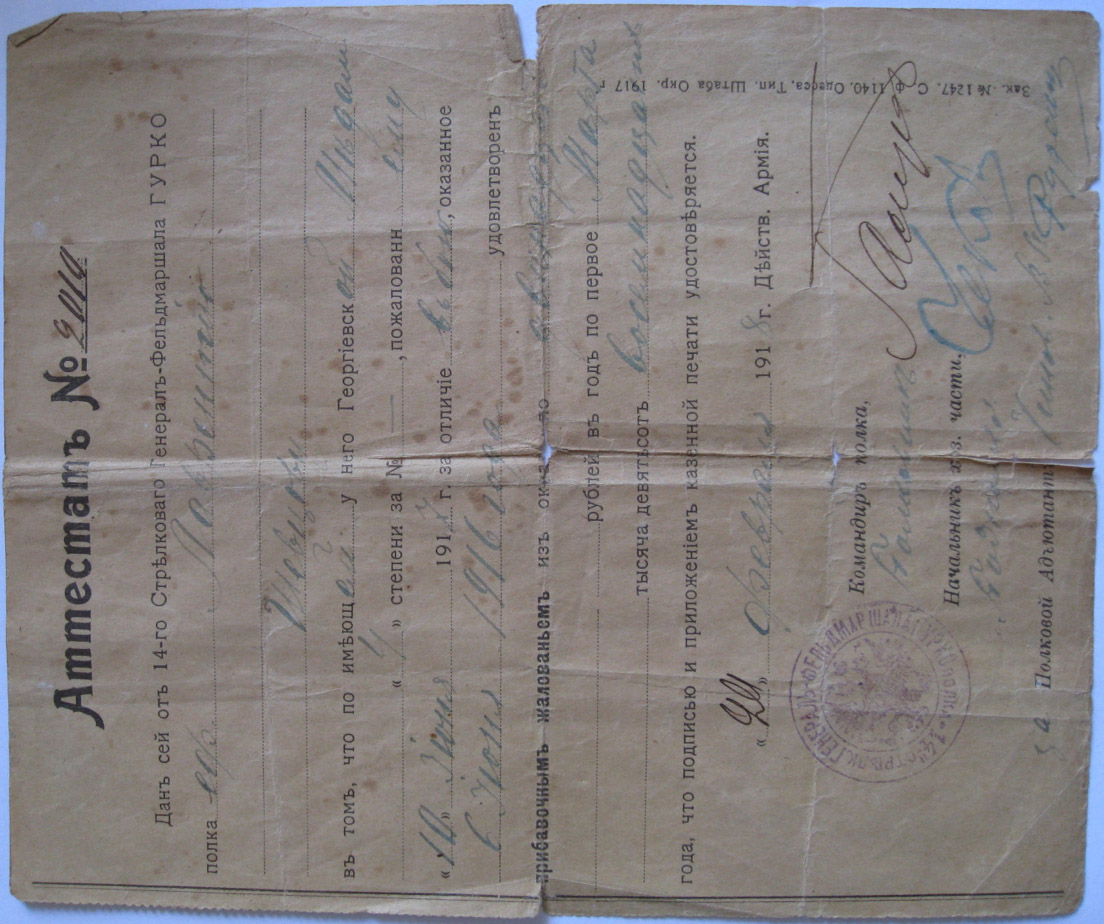 Аттестатъ №
Данъ сей отъ 14-го Стрѣлковаго Генералъ-Фельдмаршала ГУРКО
полка ефр. Лаврентію
Шевцову
въ томъ, что по имѣющей у него Георгіевской Медали
« 4 » степени за № —, пожалованн ему
«10» Іюня 1917 г. за отличіе въ бою, оказанное
6 Іюня 1916 года удовлетворенъ
прибавочнымъ жалованьемъ изъ окла по
рублей въ годъ по первое Марта
тысяча девятьсотъ восемнадцатаго
года, что подписью и приложеніемъ казенной печати удостовѣряется.
«24» февраля 1918 г. Дѣйств. Армія.
Командиръ полка,
Полковникъ
Начальникъ хоз. части,
за Полковой Адъютантъ
ГЕНЕРАЛЪ-ФЕЛЬДМАРШАЛА ГУРКО ПОЛКА
Зак. № 1247. С. Ф. 1140. Одесса, Тип. Штаба Окр. 1917 г